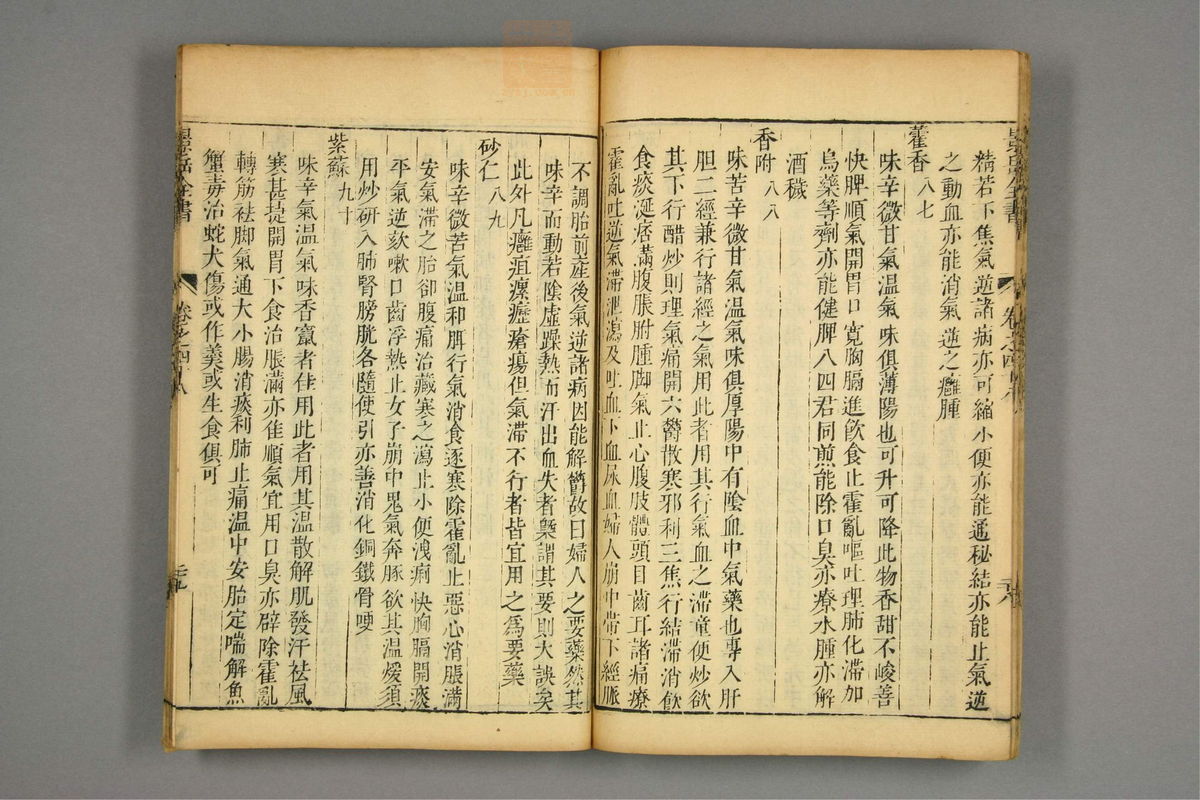 景岳全書 卷之四十八
精若下焦氣逆諸病亦可縮小便亦能通秘結亦能止氣逆
之動血亦能消氣逆之癰腫
藿香八七
味辛微甘氣溫氣味俱薄陽也可升可降此物香甜不峻善
快脾順氣開胃口寬胸膈進飲食止霍亂嘔吐理肺化滯加
烏藥等劑亦能健脾入四君同煎能除口臭亦療水腫亦解
酒穢
香附八八
味苦辛微甘氣溫氣味俱厚陽中有陰血中氣藥也專入肝
胆二經兼行諸經之氣用此者用其行氣血之滯童便炒欲
其下行醋炒則理氣痛開六鬱散寒邪利三焦行結滯消飲
食痰涎痞滿腹脹胕腫脚氣止心腹肢體頭目齒耳諸痛療
霍亂吐逆氣滯泄瀉及吐血下血尿血婦人崩中帶下經脈
不調胎前產後氣逆諸病因能解鬱故曰婦人之要藥然其
味辛而動若陰虛躁熱而汗出血失者槩謂其要則大誤矣
此外凡癰疽瘰癧瘡瘍但氣滯不行者皆宜用之爲要藥
砂仁八九
味辛微苦氣溫和脾行氣消食逐寒除霍亂止惡心消脹滿
安氣滯之胎卻腹痛治藏寒之瀉止小便洩痢快胸膈開痰
平氣逆欬嗽口齒浮熱止女子崩中鬼氣奔豚欲其溫煖須
用炒研入肺腎膀胱各隨使引亦善消化銅鐵骨哽
紫蘇九十
味辛氣溫氣味香竄者佳用此者用其溫散解肌發汗袪風
寒甚捷開胃下食治脹滿亦佳順氣宜用口臭亦辟除霍亂
轉筋祛脚氣通大小腸消痰利肺止痛溫中安胎定喘解魚
蟹毒治蛇犬傷或作羹或生食俱可
景岳全書 卷之四十八